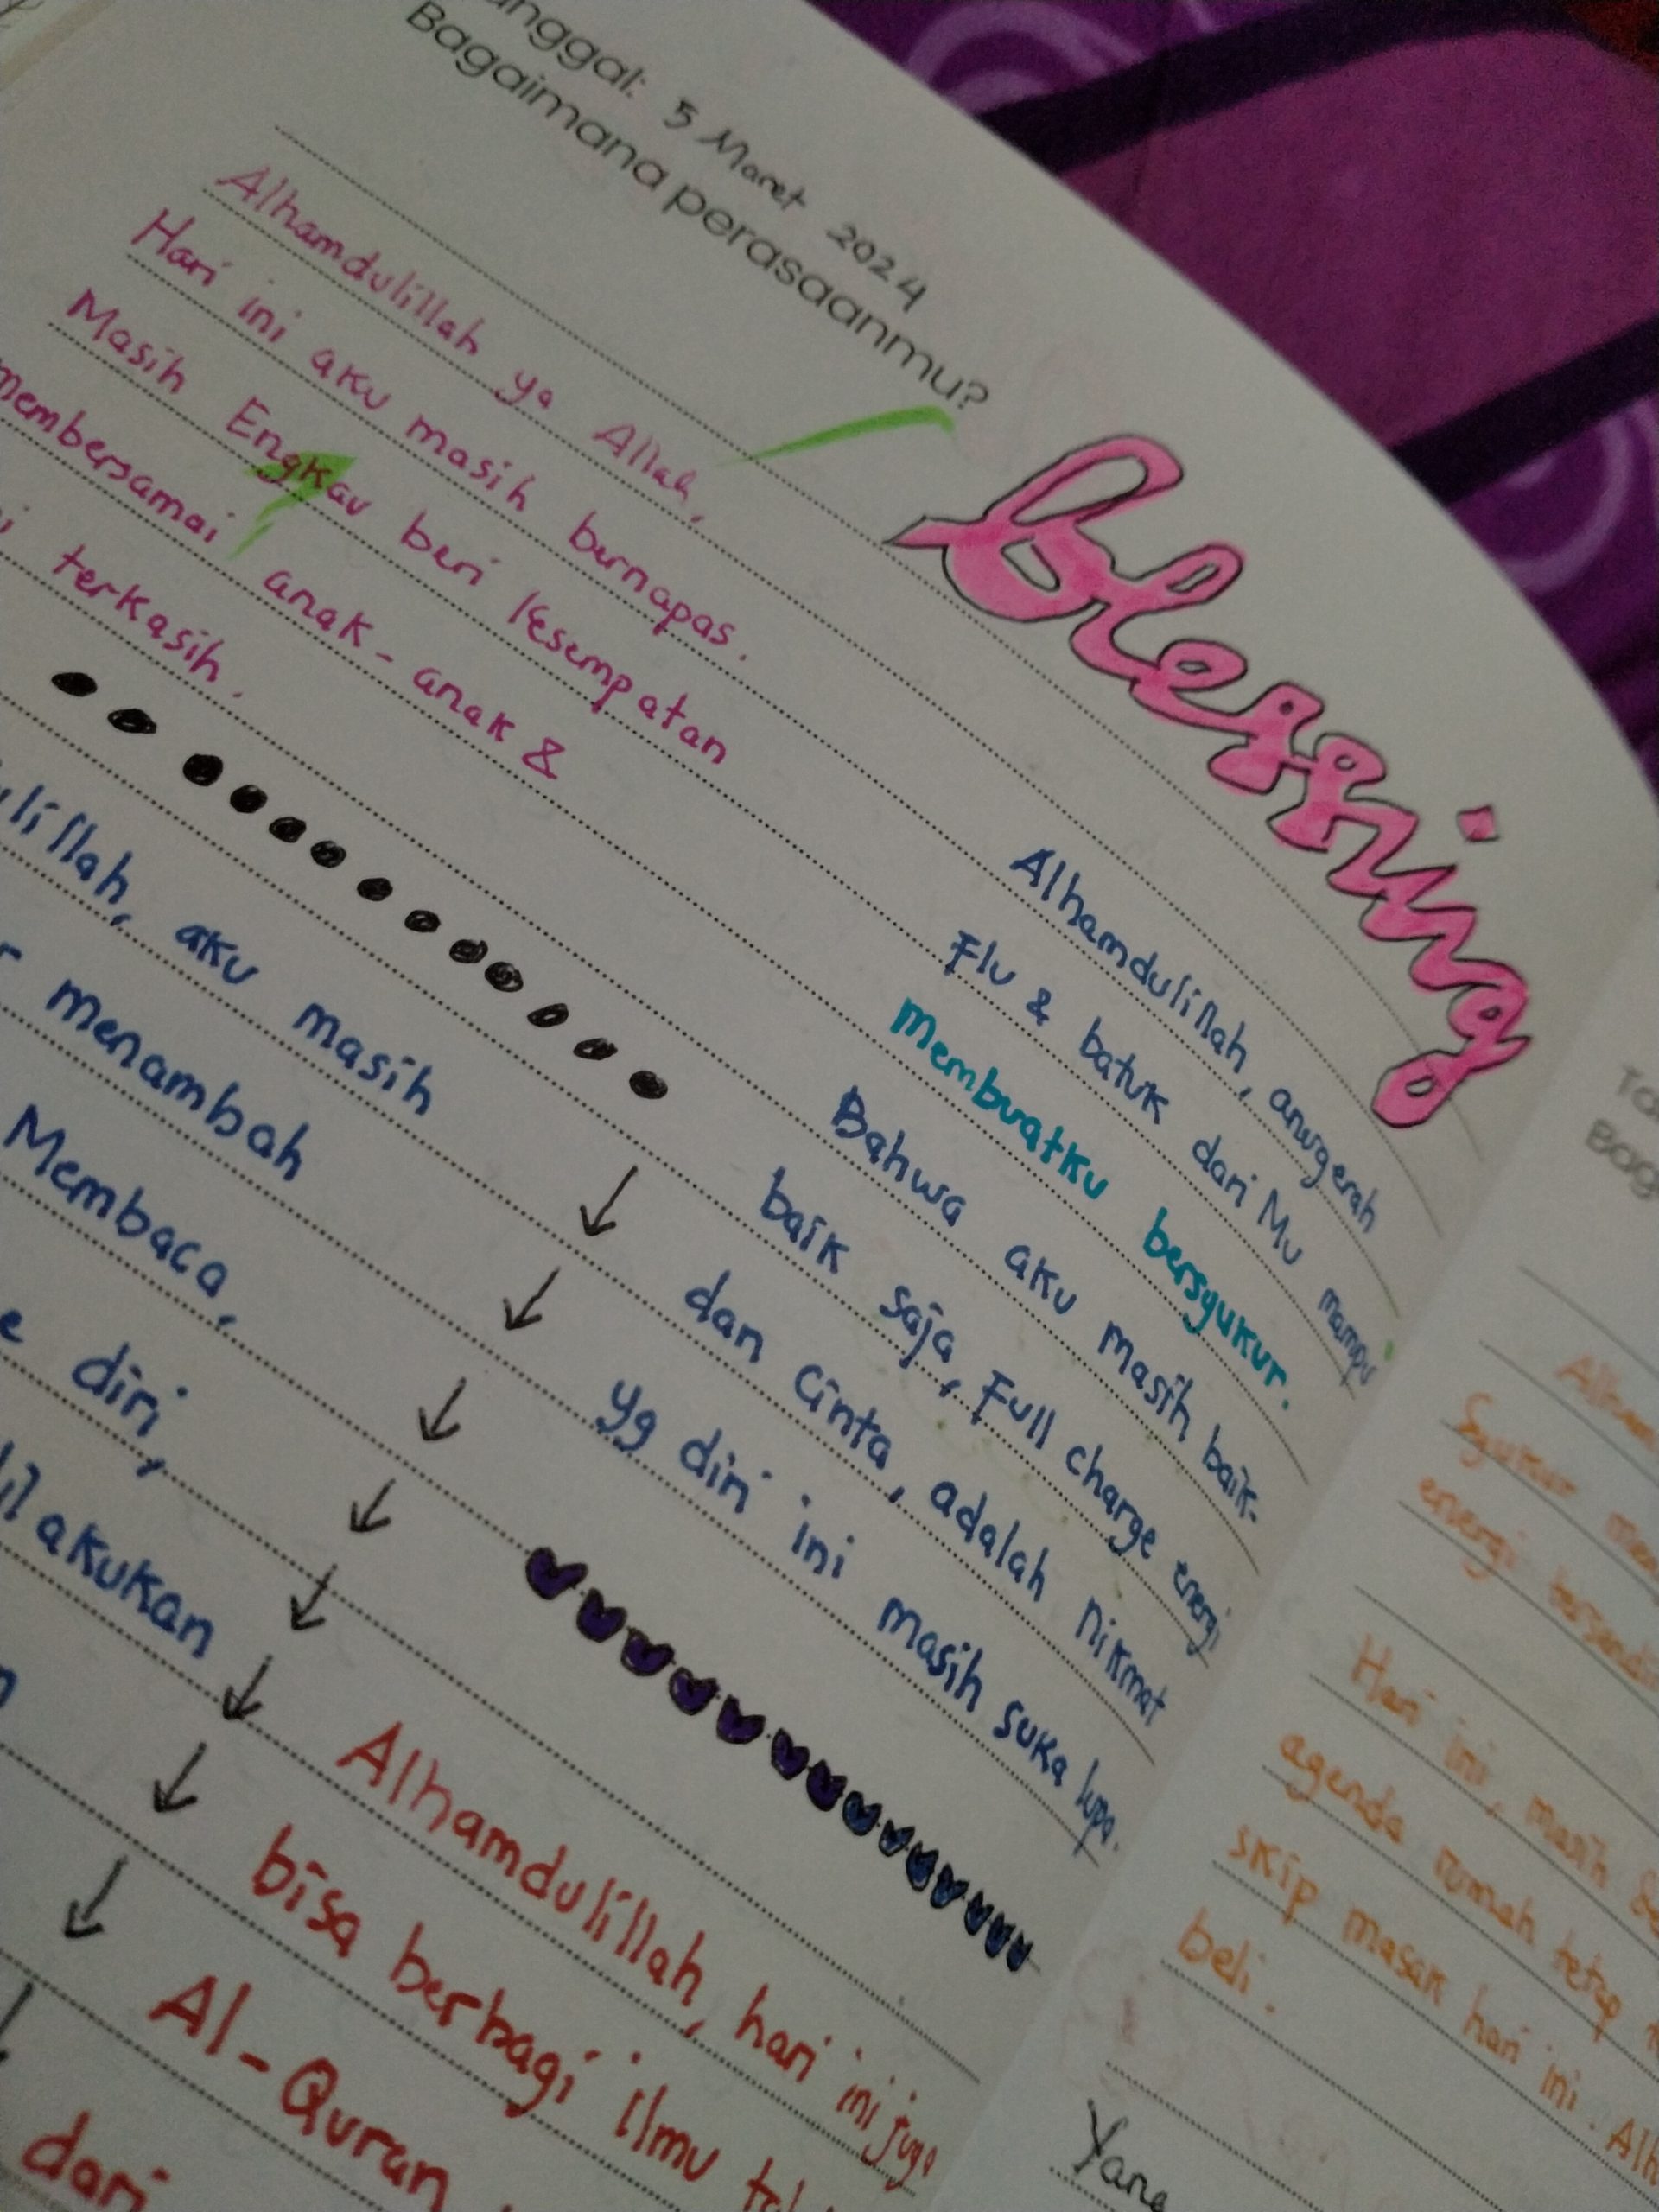 anggal: 5 Maret 2024
Bagaimana perasaanmu?
Alhamdulillah ya Allah,
Hari ini aku masih bernapas.
Masih Engkau beri kesempatan
membersamai anak-anak &
terkasih.
blessing
Alhamdulillah, anugerah
Flu & batuk dari Mu mampu
membuatku bersyukur.
Bahwa aku masih baik-
baik saja, Full charge energi
dan cinta, adalah nikmat
yg diri ini masih suka lupa.
lillah, aku masih
menambah
Membaca,
diri,
lakukan
Alhamdulillah, hari ini juga
bisa berbagi ilmu
Al-Quran
dari
Syukur
energi
Hari ini, masih
agenda rumah tetap
skip masak hari ini.
beli.
Yang